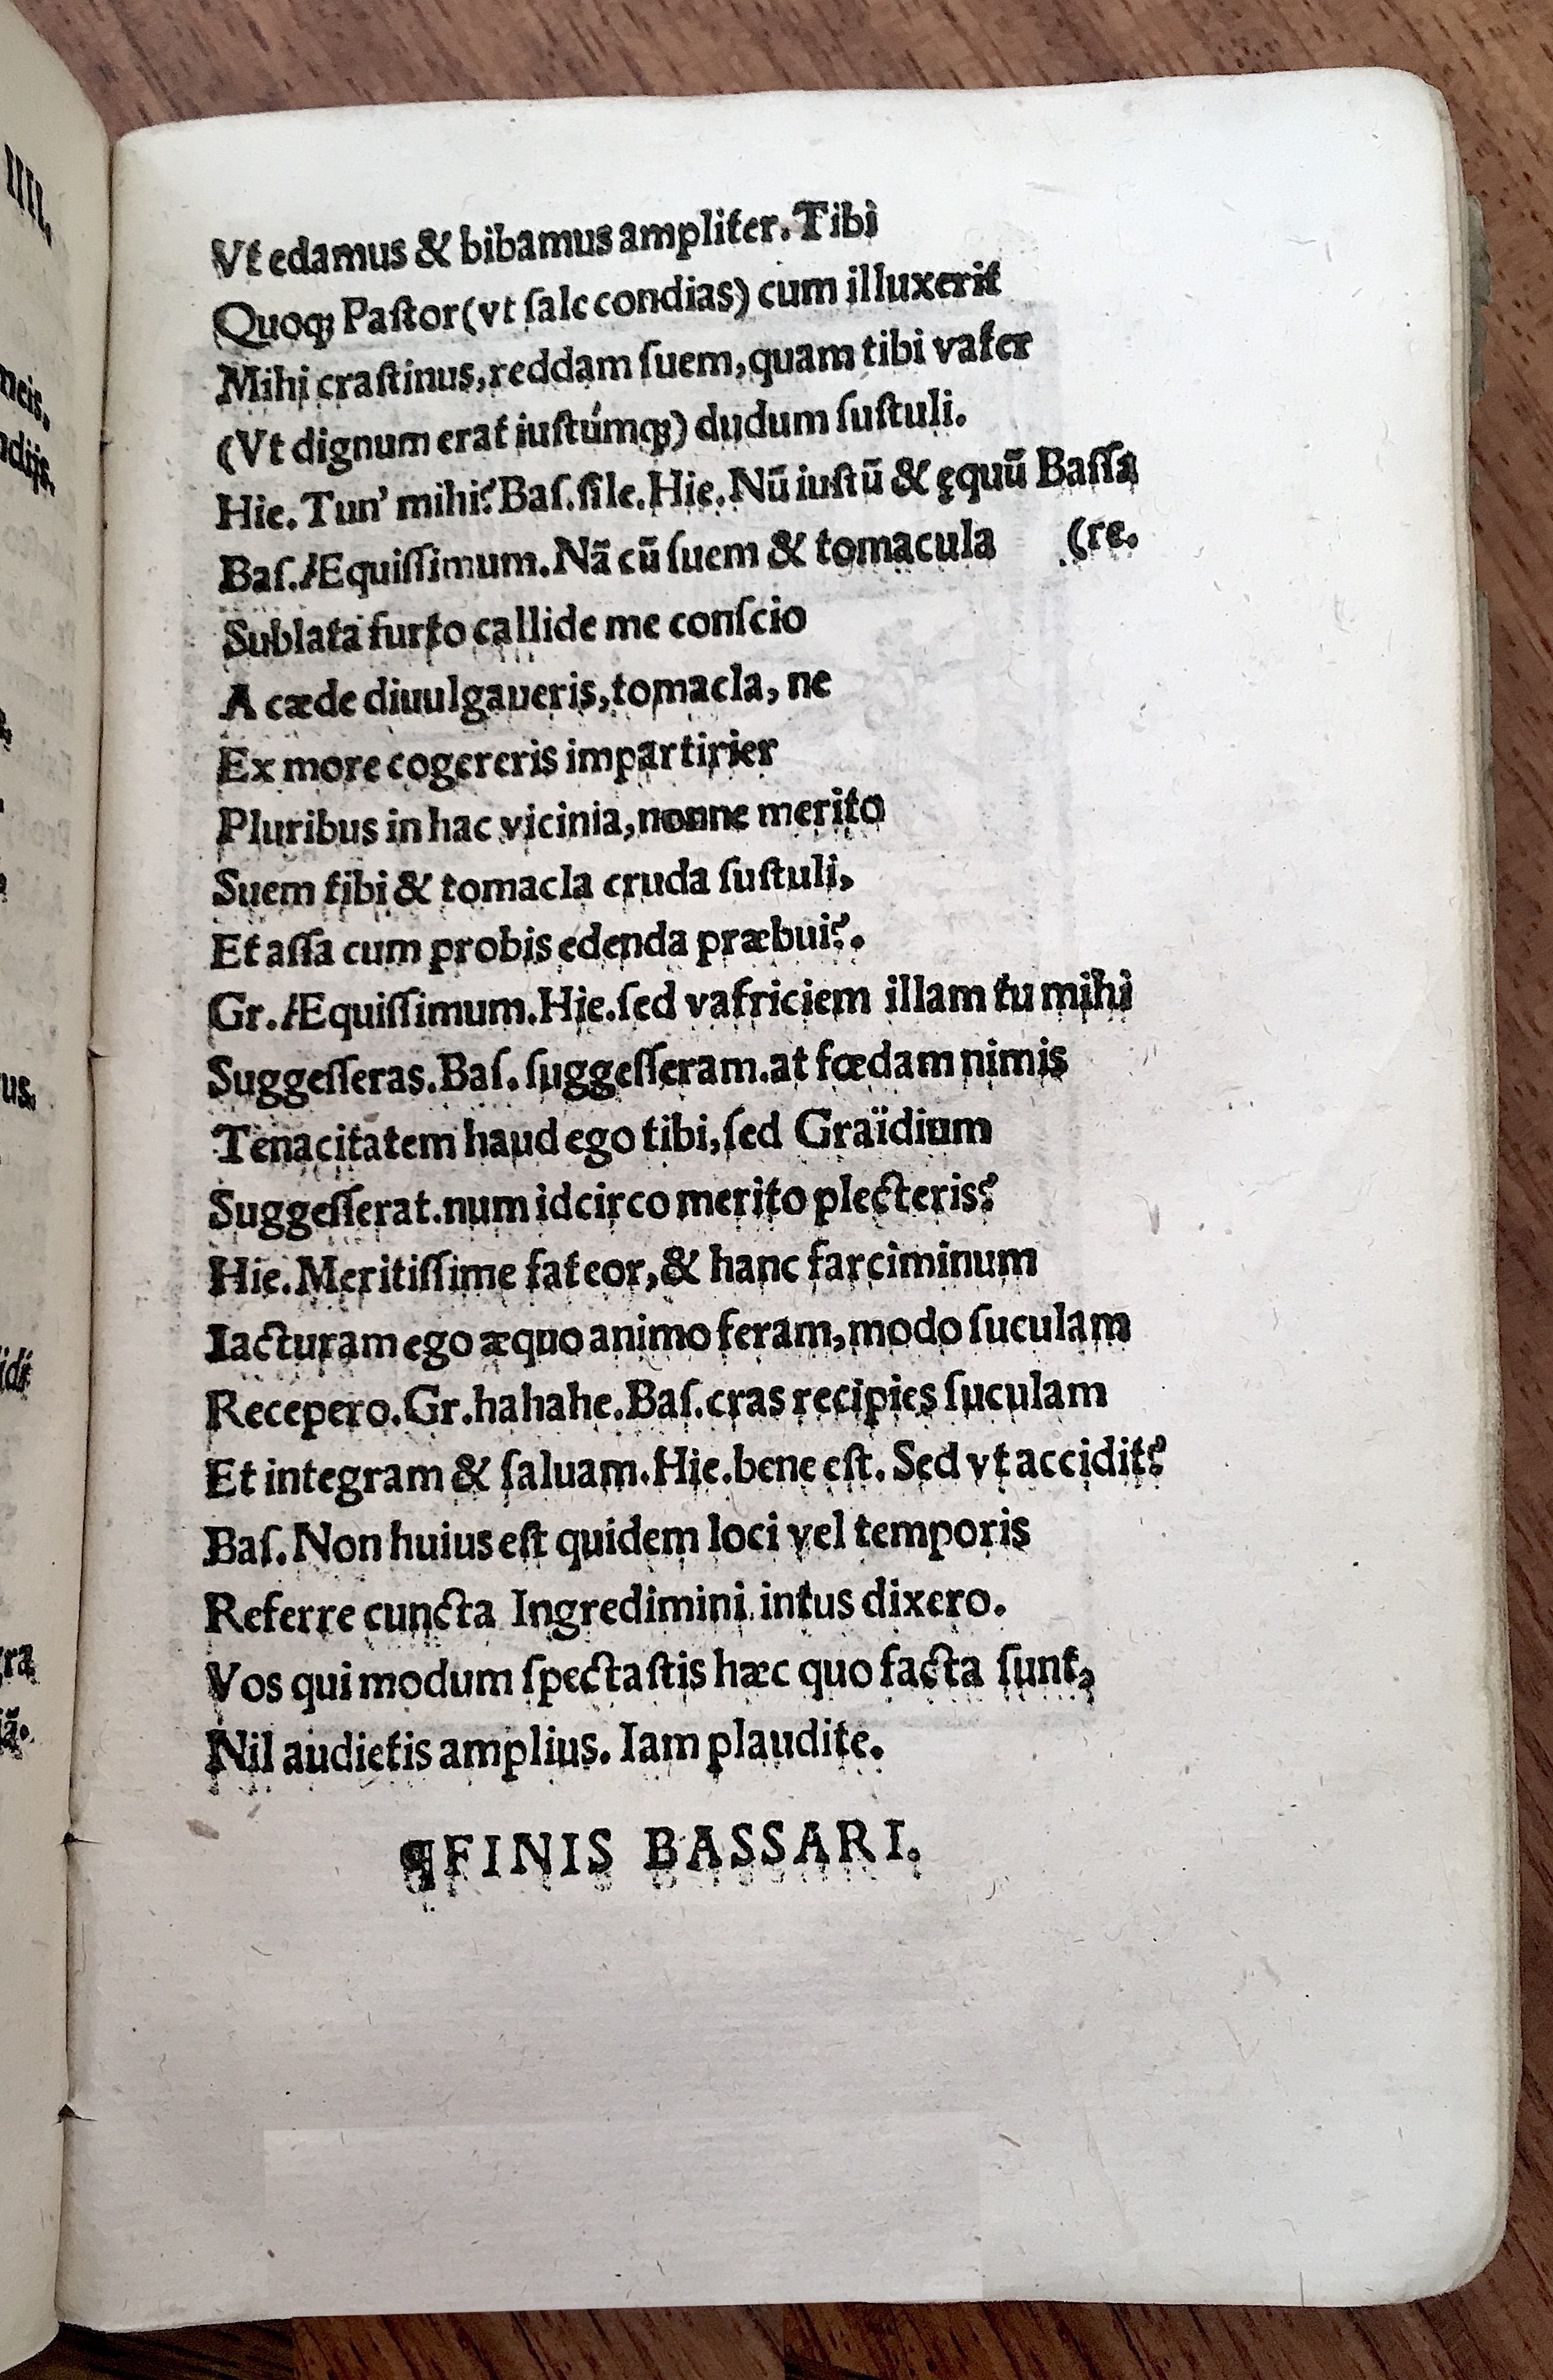 Vt edamus & bibamus ampliter. Tibi
Quoqꝫ Paſtor (vt ſale condias) cum illuxerit
Mihi craſtinus, reddam ſuem, quam tibi vafer
(Vt dignum erat iuſtúmqꝫ) dudum ſuſtuli.
Hie. Tun' mihi? Baſ. ſile. Hie. Nū iuſtū & ęquū Baſſa
(re.
Baſ. Æquiſſimum. Nā cū ſuem & tomacula
Sublata furto callide me conſcio
A cæde diuulgaueris, tomacla, ne
Ex more cogereris impartirier
Pluribus in hac vicinia, nonne merito
Suem tibi & tomacla cruda ſuſtuli,
Et aſſa cum probis edenda præbui?.
Gr. Æquiſſimum. Hie. ſed vafriciem illam tu mihi
Suggeſſeras. Baſ. ſuggeſſeram. at fœdam nimis
Tenacitatem haud ego tibi, ſed Graïdium
Suggeſſerat. num idcirco merito plecteris?
Hie. Meritiſſime fateor, & hanc farciminum
Iacturam ego æquo animo feram, modo ſuculam
Recepero. Gr. hahahe. Baſ. cras recipies ſuculam
Et integram & ſaluam. Hie. bene eſt. Sed vt accidit?
Baſ. Non huius eſt quidem loci vel temporis
Referre cuncta Ingredimini. intus dixero.
Vos qui modum ſpectaſtis hæc quo facta ſunt,
Nil audietis amplius. Iam plaudite.
¶FINIS BASSARI.